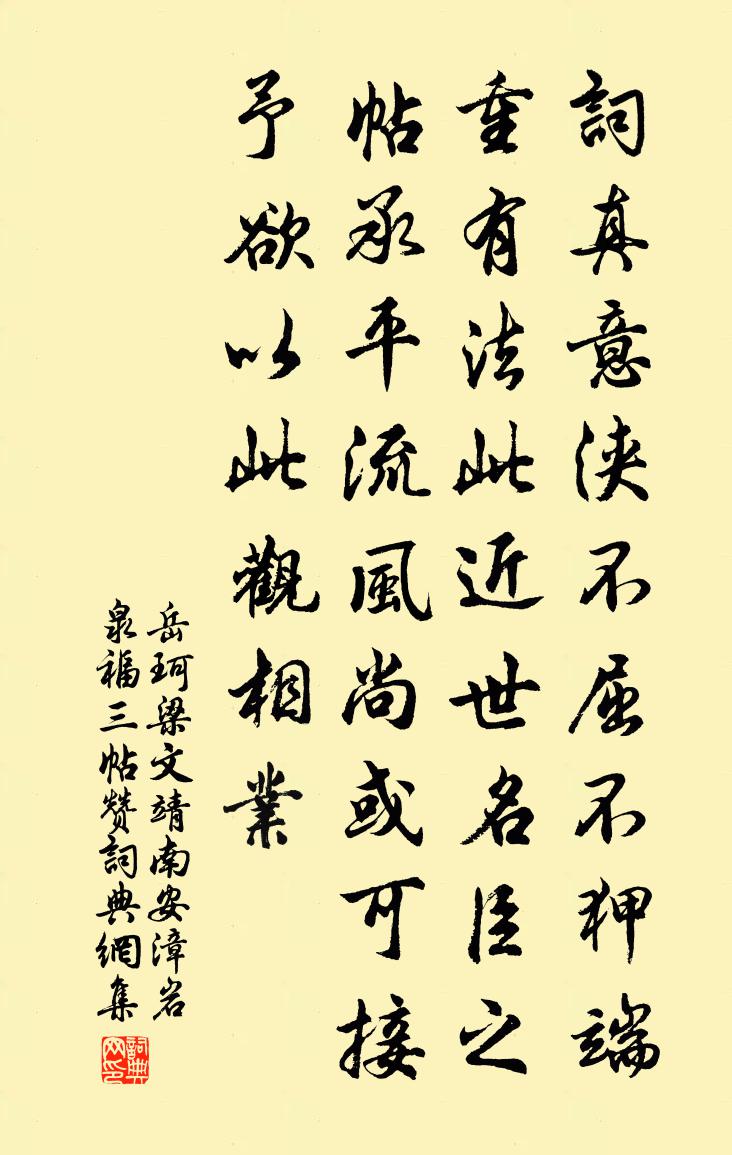 詞真意浹不屈不狎端
重有法此近世名臣之
帖承平流風尚或可接
予欲以此觀相業
岳珂梁文靖南安漳岩
泉福三帖赞詞典網集
詞典网印